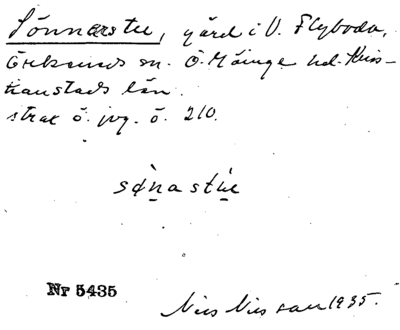 Sönnarstu, gård i V. Flyboda,
Örkeneds sn. Ö. Göinge hd. Kris-
tianstads län.
strax ö. jvg. ö. 210.
sønastue
Nr 5435
Nils Nilsson 1935.